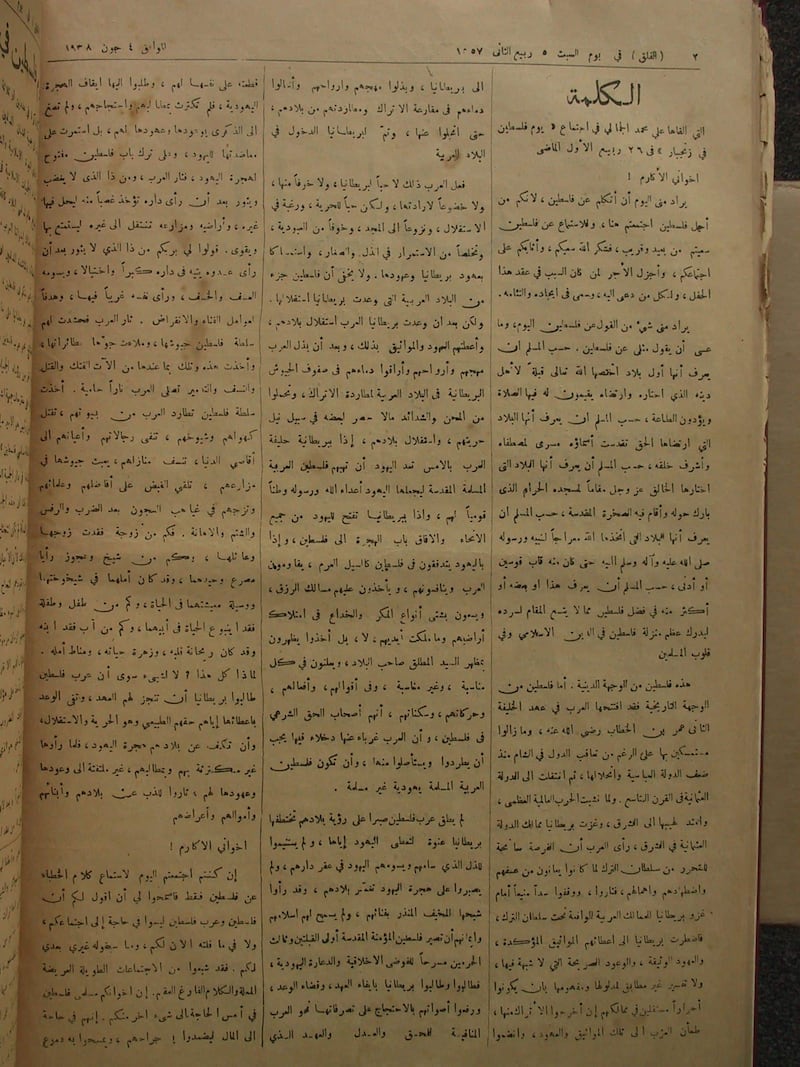 ٢ (الفلق) في يوم السبت ٥ ربيع الثاني ١٣٥٧ الموافق ٤ جون ١٩٣٨
الكلمة
التي القاها علي محمد الجمالي في اجتماع « يوم فلسطين
في زنجبار » في ٢٦ ربيع الأول الماضي
اخواني الأكارم !
يراد مني اليوم أن أتكلم عن فلسطين، لانكم من
أجل فلسطين اجتمعتم هنا، وللاستماع عن فلسطين
سعيتم من بعيد وقريب، فشكر الله سعيكم، وأثابكم على
اجتماعكم، وأجزل الأجر لمن كان السبب في عقد هذا
الحفل، ولكل من دعى اليه، وسعى في ايجاده والتئامه.
يراد مني شيء من القول عن فلسطين اليوم، وما
عسى أن يقول مثلي عن فلسطين. حسب المسلم ان
يعرف أنها أول بلاد اختصها الله تعالى قبلة لأهل
دينه الذي اختاره وارتضاه يقيمون له فيها الصلاة
ويؤدون الطاعة، حسب المسلم ان يعرف أنها البلاد
التي ارتضاها الحق تقدست أسماؤه مسرى لمصطفاه
وأشرف خلقه، حسب المسلم أن يعرف أنها البلاد التي
اختارها الخالق عز وجل مقاماً لمسجده الحرام الذي
بارك حوله وأقام فيه الصخرة المقدسة، حسب المسلم ان
يعرف أنها البلاد التي اتخذها الله معراجاً لنبيه ورسوله
صلى الله عليه وآله وسلم اليه حتى كان منه قاب قوسين
أو أدنى، حسب المسلم أن يعرف هذا او بعضه أو
أكثر منه في فضل فلسطين مما لا يتسع المقام لسرده
ليدرك عظم منزلة فلسطين في الدين الاسلامي وفي
قلوب المسلمين
هذه فلسطين من الوجهة الدينية. أما فلسطين من
الوجهة التاريخية فقد افتتحها العرب في عهد الخليفة
الثاني عمر بن الخطاب رضي الله عنه، وما زالوا
متمسكين بها على الرغم من تعاقب الدول في الشام منذ
ضعف الدولة العباسية وانحلالها، ثم انتقلت الى الدولة
العثمانية في القرن التاسع. ولما نشبت الحرب العالمية العظمى،
وامتد لهيبها الى الشرق، وغزت بريطانيا ممالك الدولة
العثمانية في الشرق، رأى العرب أن الفرصة سانحة
للتحرر من سلطان الترك لما كانوا يعانون من عسفهم
واضطهادهم واهمالهم، فثاروا، ووقفوا سداً منيعاً أمام
غزو بريطانيا الممالك العربية الواقعة تحت سلطان الترك،
فاضطرت بريطانيا الى أعطائهم المواثيق المؤكدة،
والعهود الوثيقة، والوعود الصريحة التي لا شبهة فيها،
ولا تفسير غير مطابق لمدلولها ومفهومها بأن يكونوا
أحراراً مستقلين في ممالكهم إن أخرجوا الأتراك منها،
طمأن العرب الى تلك المواثيق والعهود، وانضموا
الى بريطانيا، وبذلوا مهجهم وارواحهم وأسالوا
دماءهم في مقارعة الاتراك ومطاردتهم من بلادهم،
حتى انجلوا عنها، وتم لبريطانيا الدخول في
البلاد العربية
فعل العرب ذلك لا حباً لبريطانيا، ولا خوفاً منها،
ولا خضوعاً لارادتها، ولكن حباً للحرية، ورغبة في
الاستقلال، ونزوعاً الى المجد، وخوفاً من العبودية،
وتخلصاً من الاستمرار في الذل والصغار، واستمساكا
بعهود بريطانيا وعهودها. ولا يخفى أن فلسطين جزء
من البلاد العربية التي وعدت بريطانيا استقلالها.
ولكن بعد ان وعدت بريطانيا العرب استقلال بلادهم،
وأعطتهم العهود والمواثيق بذلك، وبعد أن بذل العرب
مهجهم وأرواحهم وأراقوا دماءهم في صفوف الجيوش
البريطانية في البلاد العربية لمطاردة الاتراك، وتحملوا
من المحن والشدائد مالا حصر لبعضه في سبيل نيل
حريتهم، واستقلال بلادهم، إذا ببريطانية حليفة
العرب بالامس تعد اليهود أن تهبهم فلسطين العربية
المسلمة المقدسة ليجعلها اليهود أعداء الله ورسوله وطناً
قومياً لهم، واذا ببريطانيا تفتح لليهود من جميع
الانحاء والآفاق باب الهجرة الى فلسطين، وإذا
باليهود يتدفقون في فلسطين كالسيل العرم، يقاومون
العرب وينافسونهم، ويأخذون عليهم مسالك الرزق،
ويسعون بشتى أنواع المكر والخداع في امتلاك
أراضيهم وما ملكت أيديهم، لا، بل أخذوا يظهرون
بمظهر السيد المطلق صاحب البلاد، ويعلنون في كل
مناسبة، وغير مناسبة، وفي أقوالهم، وأفعالهم،
وحركاتهم، وسكناتهم، أنهم أصحاب الحق الشرعي
في فلسطين، وأن العرب غرباء عنها دخلاء فيها يجب
أن يطردوا ويستأصلوا منها، وأن تكون فلسطين
العربية المسلمة يهودية غير مسلمة.
لم يطق عرب فلسطين صبرا على رؤية بلادهم تختطفها
بريطانيا عنوة لتعطي اليهود إياها، ولم يستنيموا
للذل الذي سامهم ويسومهم اليهود في عقر دارهم، ولم
يصبروا على هجرة اليهود تغمر بلادهم، وقد رأوا
شبحها المخيف المنذر بفنائهم، ولم يسمح لهم اسلامهم
وايمانهم أن تصير فلسطين المؤمنة المقدسة أولى القبلتين وثالث
الحرمين مسرحاً للفوضى الاخلاقية والدعارة اليهودية،
فطالبوا وطالبوا بريطانيا بايفاء العهد، وقضاء الوعد،
ورفعوا أصواتهم بالاحتجاج على تصرفاتها نحو العرب
المنافية للحق والعدل والعهد الذي
قطعته على نفسها لهم، وطلبوا اليها ايقاف الهجرة
اليهودية، فلم تكترث بمطالبهم واحتجاجهم، ولم تصغ
الى الذكرى بوعودها وعهودها لهم، بل استمرت على
معاضدتها لليهود، وعلى ترك باب فلسطين مفتوح
لهجرة اليهود، فثار العرب، ومن ذا الذي لا يغضب
ويثور بعد أن رأى داره تؤخذ غصباً منه ليحل فيها
غيره، وأراضيه ومزارعه تنتقل الى غيره ليستمتع بها
ويقوى. قولوا لي بربكم من ذا الذي لا يثور بعد أن
رأى عدوه يتيه في داره كبراً واختيالا، ويسومه
العسف والخسف، ورأى نفسه غريباً فيها، وهدفاً
لعوامل الفناء والانقراض. ثار العرب فحشدت لهم
سلطة فلسطين جيوشها، وملأت جوها بطائراتها،
وأخذت هذه وتلك بما عندها من الآت الفتك والقتل
والنسف والتدمير تصلى العرب ناراً حامية. أخذت
سلطة فلسطين تطارد العرب من بيوتهم، تقتل
كهولهم وشيوخهم، تنفى رجالاتهم وأعيانهم الى
أقاصي الدنيا، تنسف منازلهم، يعبث جيوشها في
مزارعهم، تلقي القبض على أفاضلهم وعلمائهم
وتزجهم في غياهب السجون بعد الضرب والرفس
والشتم والاهانة. فكم من زوجة فقدت زوجها
وعائلها، وكم من شيخ وعجوز رأيا
مصرع وحيدهما، وقد كان أملهما في شيخوختهما
ووسيلة معيشتهما في الحياة، وكم من طفل وطفلة
فقدا ينبوع الحياة في أبيهما، وكم من أب فقد ابنه
وقد كان ريحانة قلبه، وزهرة حياته، ومناط أمله.
لماذا كل هذا ؟ لا لشيء سوى أن عرب فلسطين
طالبوا بريطانيا أن تنجز لهم العهد، وتفي الوعد
باعطائها إياهم حقهم الطبيعي وهو الحرية والاستقلال،
وأن تكف عن بلادهم هجرة اليهود، فلما رأوها
غير مكترثة بهم وبمطالبهم، غير ملتفتة الى وعودها
وعهودها لهم، ثاروا للذب عن بلادهم وأبنائهم
وأموالهم وأعراضهم
اخواني الاكارم !
إن كنتم اجتمعتم اليوم لاستماع كلام الخطباء
عن فلسطين فقط فاسمحوا لي أن اقول لكم أن
فلسطين وعرب فلسطين ليسوا في حاجة إلى اجتماعكم،
ولا في ما قلته الان لكم، وما سيقوله غيري بعدي
لكم. فقد شبعوا من الاجتماعات الطويلة العريضة
المملة والكلام الفارغ العقيم. إن اخوانكم مسلمي فلسطين
في أمس الحاجة الى شيء اخر منكم. إنهم في حاجة
الى المال ليضمدوا ! جراحهم، ويمسحوا به دموع